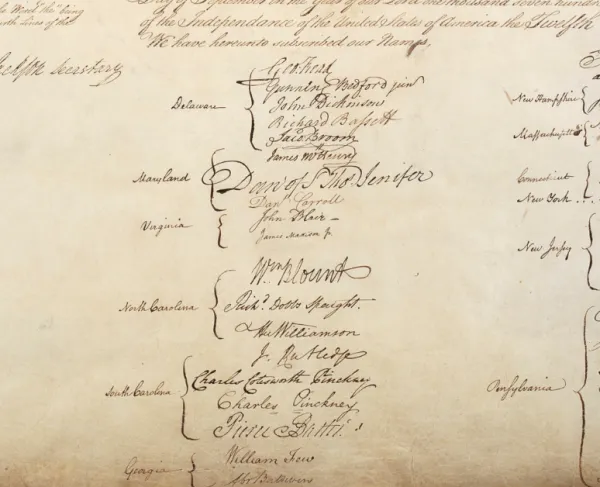 the Word the being
Lines of the
Jackson Secretary
Day of September in the Year of our Lord one thousand seven hund
of the Independance of the United States of America the Twelfth
We have hereunto subscribed our Names,
Delaware
Geo: Read
Gunning Bedford jun
John Dickinson
Richard Bassett
Jaco: Broom
Maryland
James McHenry
Dan of St Thos Jenifer
Danl Carroll
Virginia
John Blair –
James Madison Jr
North Carolina
Wm Blount
Richd. Dobbs Spaight.
Hu Williamson
South Carolina
J. Rutledge
Charles Cotesworth Pinckney
Charles Pinckney
Pierce Butler.
Georgia
William Few
Abr Baldwin
New Hampshire
Massachusetts
Connecticut
New York . .
New Jersey
Pensylvania